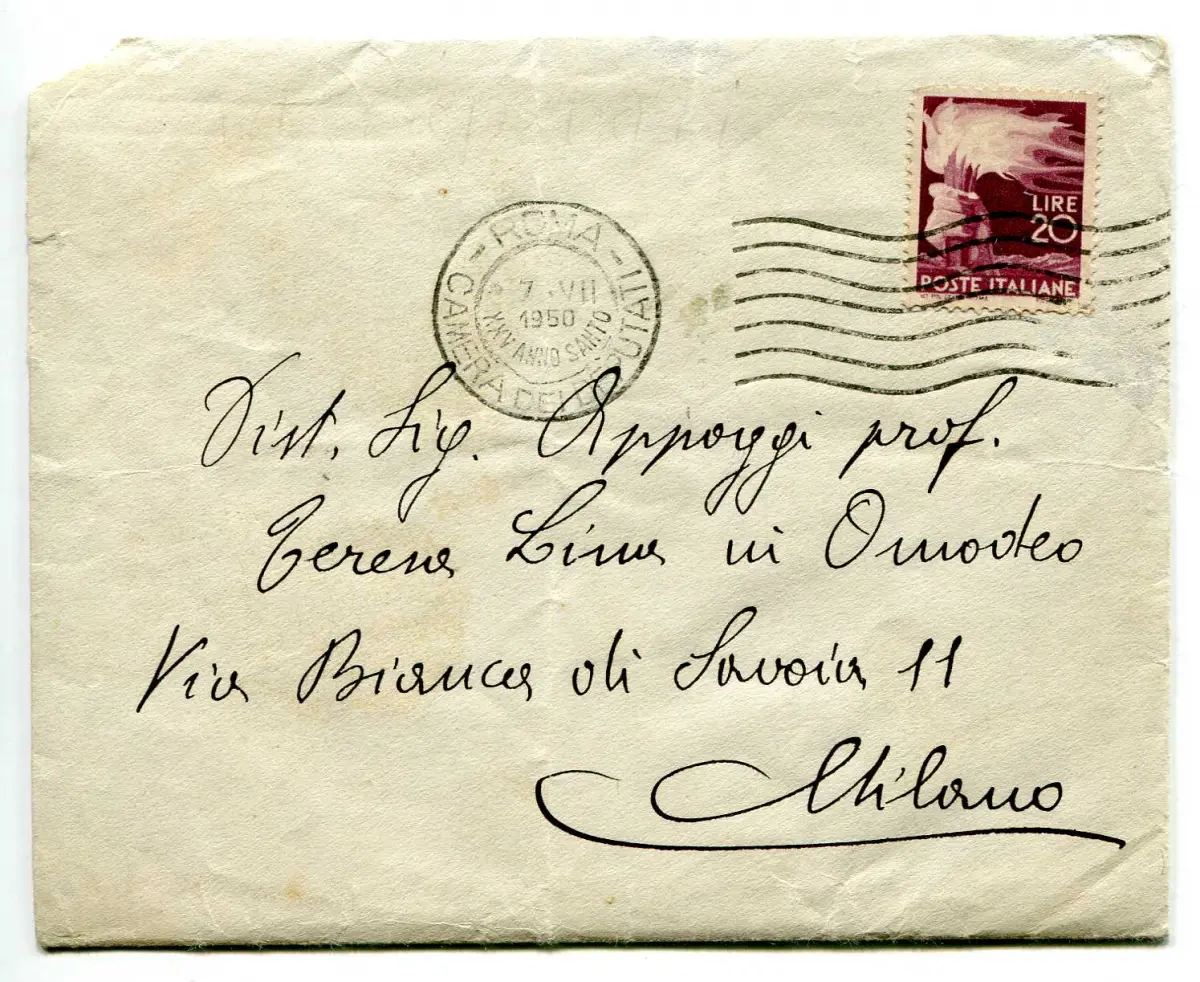 LIRE
20
POSTE ITALIANE
- ROMA -
CAMERA DEI DEPUTATI
7 .VII
1950
XXV ANNO SANTO
Dist. Sig. Appoggi prof.
Teresa Lina in Omodeo
Via Bianca di Savoia 11
Milano